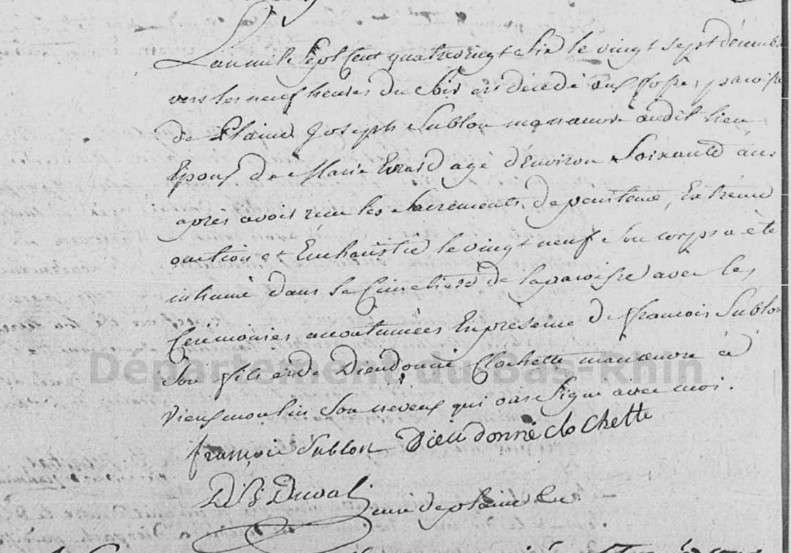 L'an mil Sept Cent quatre vingt Six le vingt Sept décembre
vers les neuf heures du Soir est décédé aux fosse, paroisse
de Plaine Joseph Sublon manœuvre audit lieu
Epoux de Marie Evrard agé d'Environ Soixante ans
après avoir reçu les Sacrements de penitence, Extreme
onction et Euchaistie le vingt neuf Son corps a été
inhumé dans le Cimetiere de la paroisse avec les
Cérémonies accoutumées En présence de françois Sublon
Son fils et de Dieudonné Clochette manœuvre à
Vieux moulin Son neveux qui ont Signé avec moi.
françois Sublon Dieudonné clochette
Duval curé de plaine
Département du Bas-Rhin